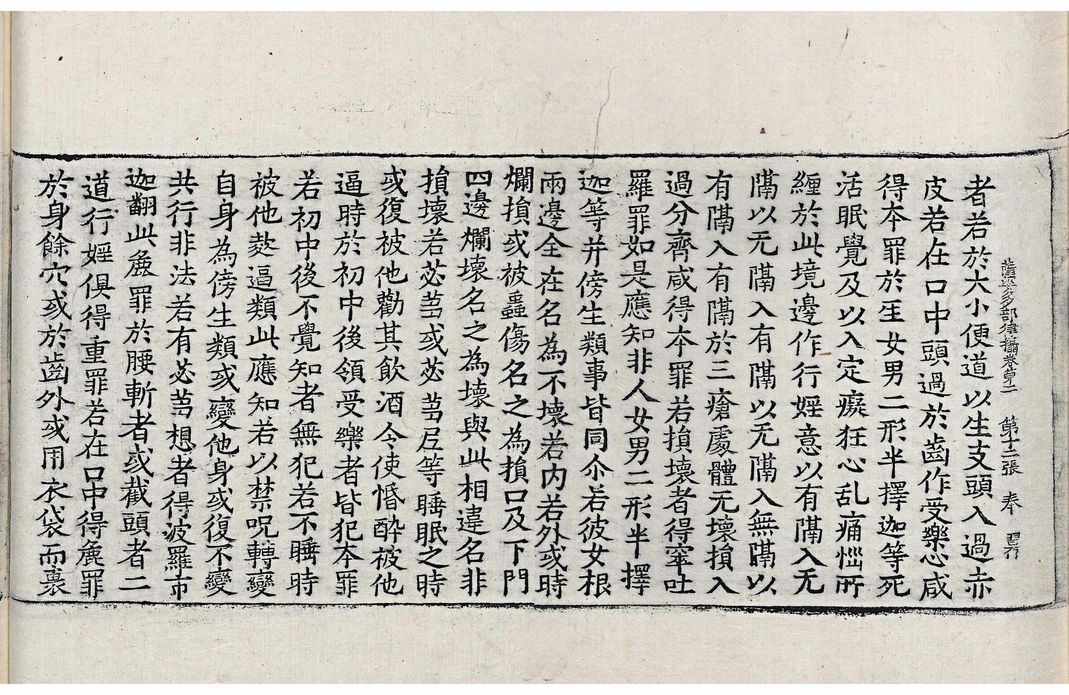 薩婆多部律攝卷第二 第十二張 奉
者若於大小便道以生支頭入過赤
皮若在口中頭過於齒作受樂心咸
得本罪於𤯔女男二形半擇迦等死
活眠覺及以入定癡狂心乱痛惱所
纏於此境邊作行婬意以有隔入无
隔以无隔入有隔以无隔入無隔以
有隔入有隔於三瘡處體无壞損入
過分齊咸得本罪若損壞者得窣吐
羅罪如是應知非人女男二形半擇
迦等并傍生類事皆同尒若彼女根
兩邊全在名為不壞若内若外或時
爛損或被蟲傷名之為損口及下門
四邊爛壞名之為壞與此相違名非
損壞若苾芻或苾芻尼等睡眠之時
或復被他勸其飲酒令使惛醉被他
逼時於初中後領受樂者皆犯本罪
若初中後不覺知者無犯若不睡時
被他逼類此應知若以禁呪轉變
自身為傍生類或變他身或復不變
共行非法若有苾芻想者得波羅市
迦翻此麁罪於腰斬者或截頭者二
道行婬俱得重罪若在口中得麁罪
於身餘穴或於齒外或用衣袋而裹